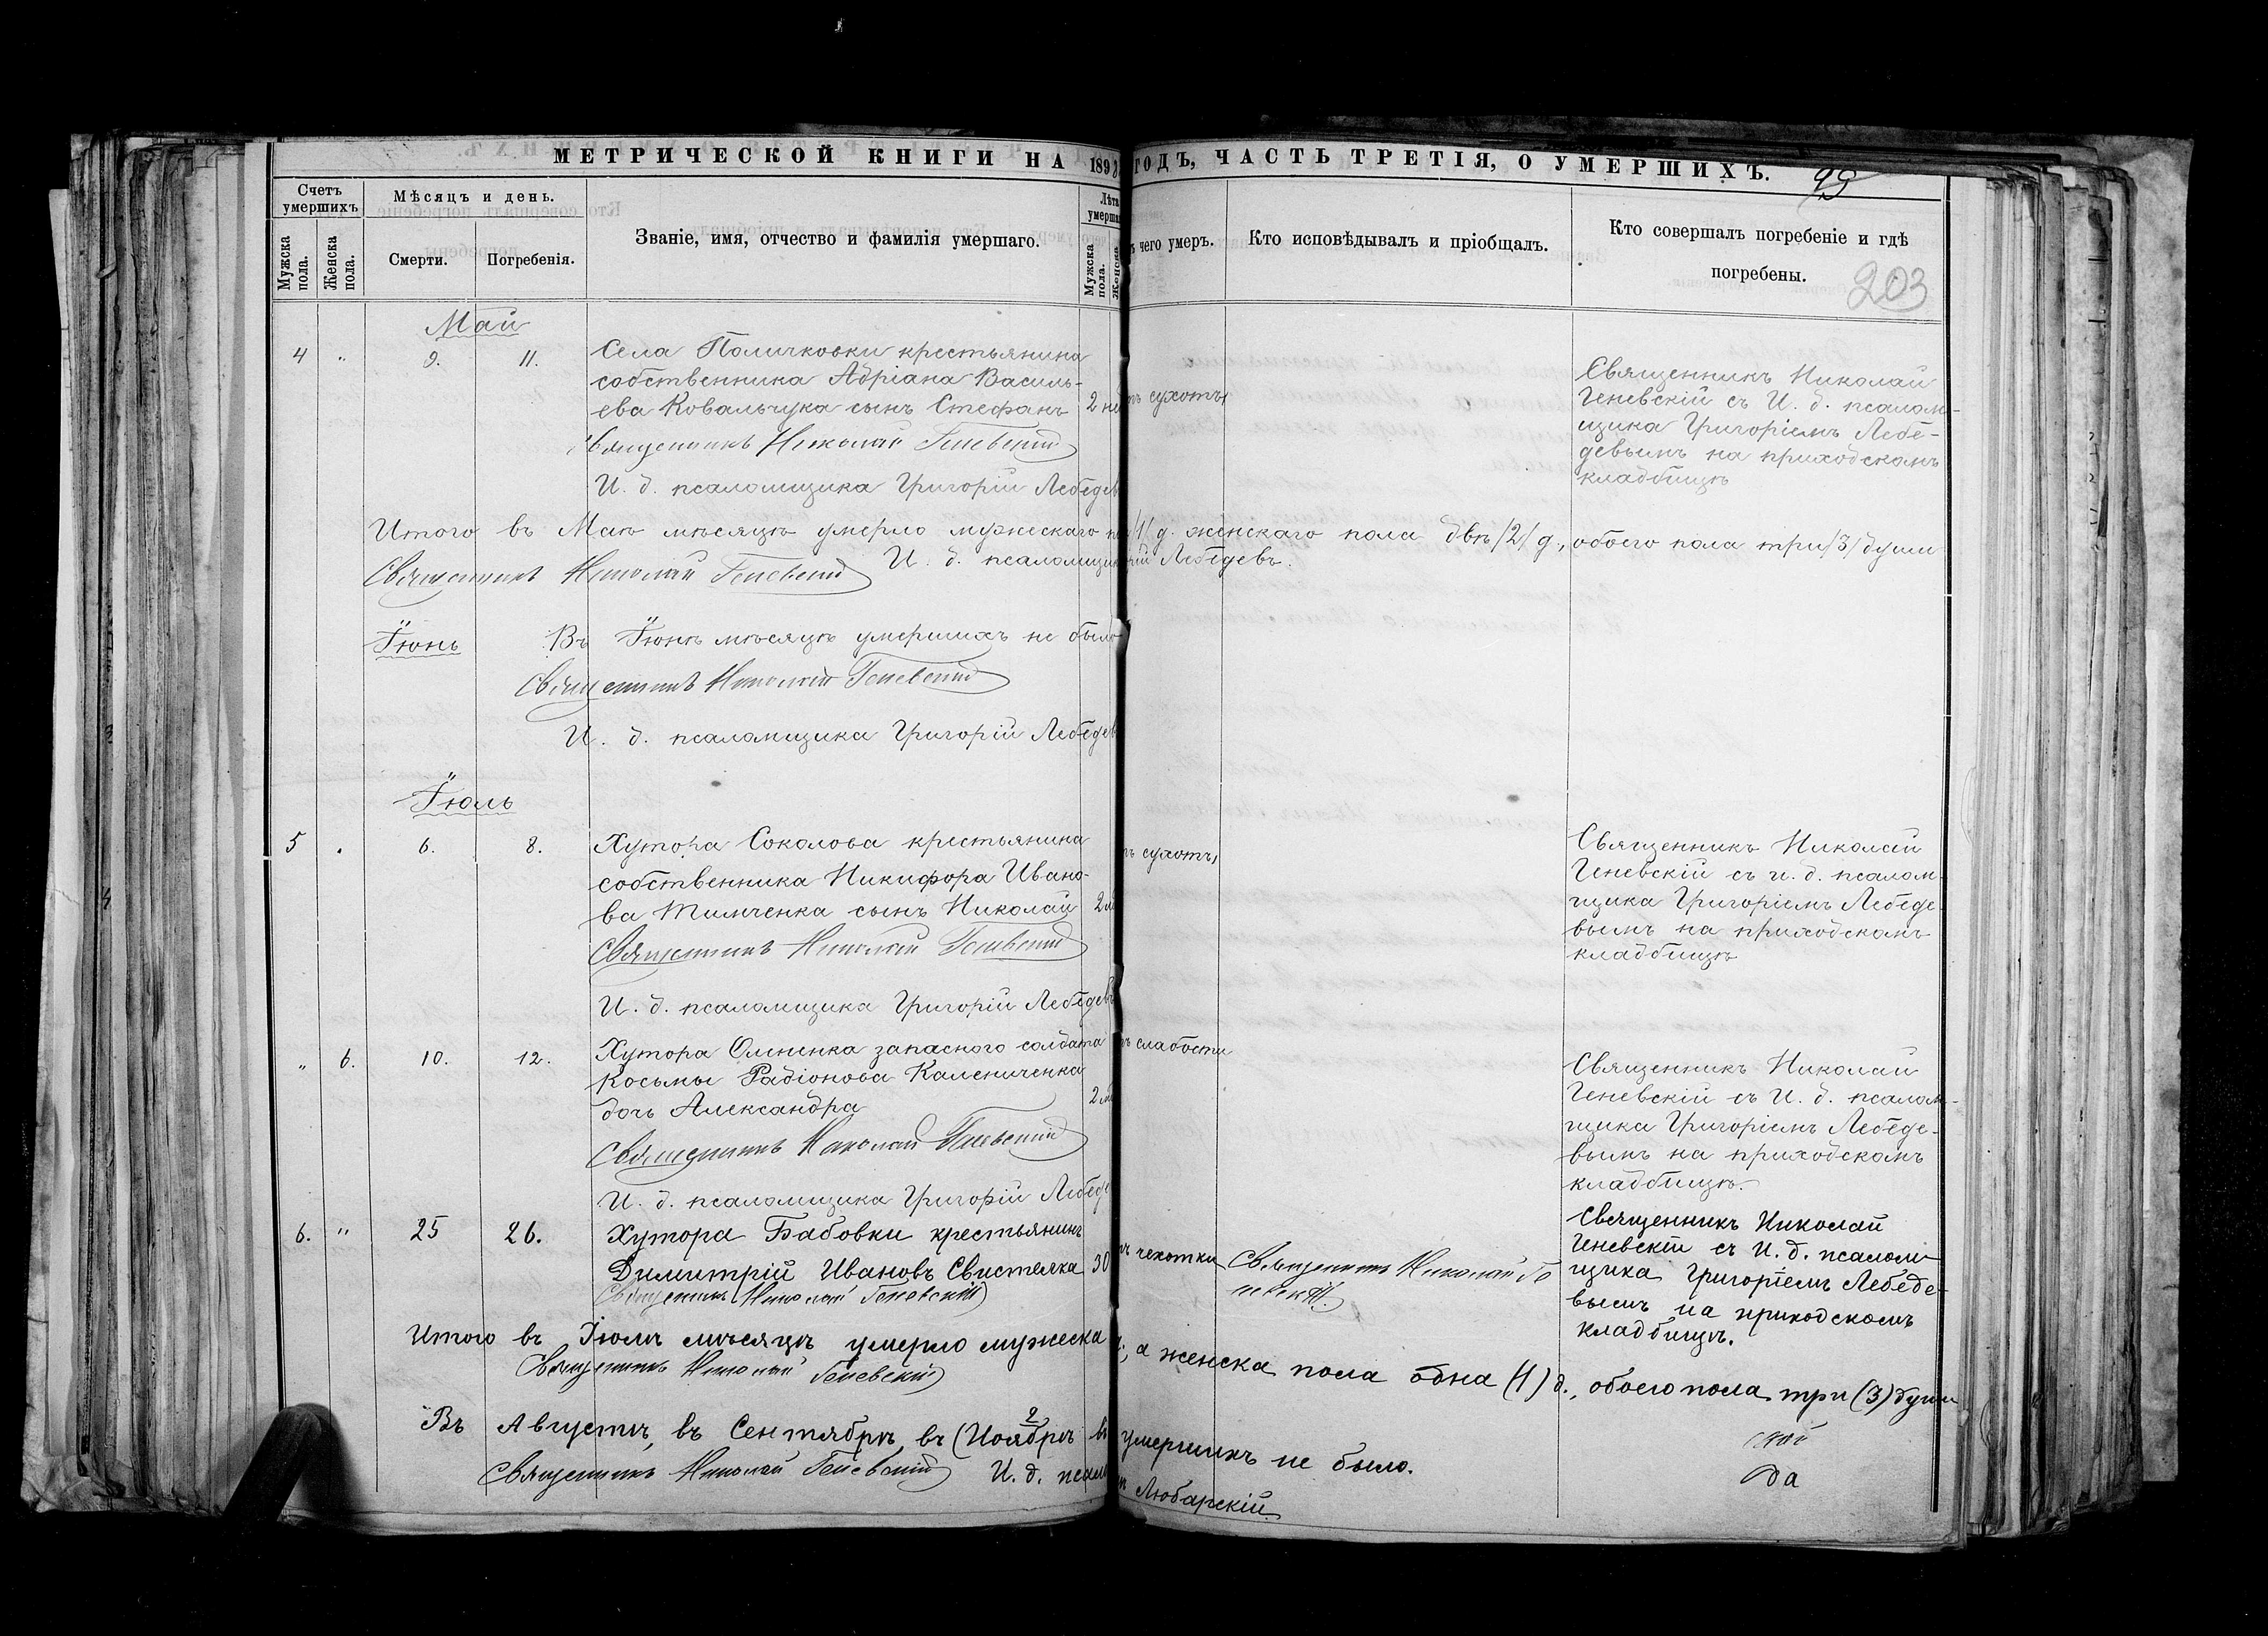 МЕТРИЧЕСКОЙ КНИГИ НА 1898 ГОДЪ, ЧАСТЬ ТРЕТІЯ, О УМЕРШИХЪ.
95
203
Счетъ умершихъ
Мѣсяцъ и день.
Званіе, имя, отчество и фамилія умершаго.
Лѣта
умерша
чего умеръ.
Кто исповѣдывалъ и пріобщалъ.
Кто совершалъ погребеніе и гдѣ
погребены.
Мужска пола.
Женска пола.
Смерти.
Погребенія.
Мужска пола.
Женска
Май
4 " 9. 11.
Села Поличковки крестьянина
собственника Адріана Василь-
ева Ковальчука сынъ Стефанъ
2 не
сухоты
Священникъ Николай Геневскій
И. д. псаломщика Григорій Лебедев
Священникъ Николай
Геневскій съ И. д. псалом-
щика Григоріемъ Лебе-
девымъ на приходскомъ
кладбищѣ
Итого въ Маѣ мѣсяцѣ умерло мужескаго по /1/ д. женскаго пола двѣ /2/ д., обоего пола три /3/ души
Священникъ Николай Геневскій И. д. псаломщик рій Лебедевъ.
Іюнь
Въ Іюнѣ мѣсяцѣ умершихъ не было
Священникъ Николай Геневскій
И. д. псаломщика Григорій Лебедев
Іюль
5 " 6. 8.
Хутора Соколова крестьянина
собственника Никифора Ивано-
ва Тимченка сынъ Николай
2 м
сухоты
Священникъ Николай Геневскій
И. д. псаломщика Григорій Лебедевъ
Священникъ Николай
Геневскій съ и. д. псалом-
щика Григоріемъ Лебеде-
вымъ на приходскомъ
кладбищѣ
" 6. 10. 12.
Хутора Олененка запасного солдата
Косьмы Радіонова Калениченка
дочь Александра
2 м
слабости
Священникъ Николай Геневскій
И. д. псаломщика Григорій Лебеде
Священникъ Николай
Геневскій съ И. д. псалом-
щика Григоріемъ Лебеде-
вымъ на приходскомъ
кладбищѣ.
6. " 25 26.
Хутора Бабовки крестьянинъ
Димитрій Ивановъ Свистелка
30
чахотки
Священникъ Николай Ге
невскій.
Священникъ Николай Геневскій
Священникъ Николай
Геневскій съ И. д. псалом-
щика Григоріемъ Лебеде-
вымъ на приходскомъ
кладбищѣ.
Итого въ Іюлѣ мѣсяцѣ умерло мужеска , а женска пола одна (1) д., обоего пола три (3) души
Священникъ Николай Геневскій
Въ Августѣ, въ Сентябрѣ, въ Ноябрѣ въ умершихъ не было.
Священникъ Николай Геневскій И. д. псалом Любарскій
да